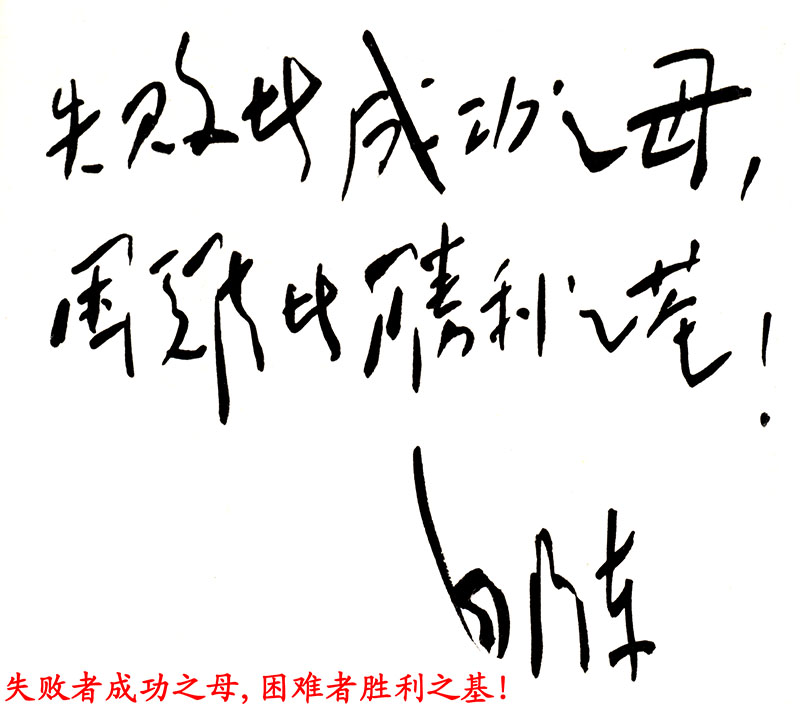 失败者成功之母，
困难者勝利之基！
失败者成功之母，困难者胜利之基！